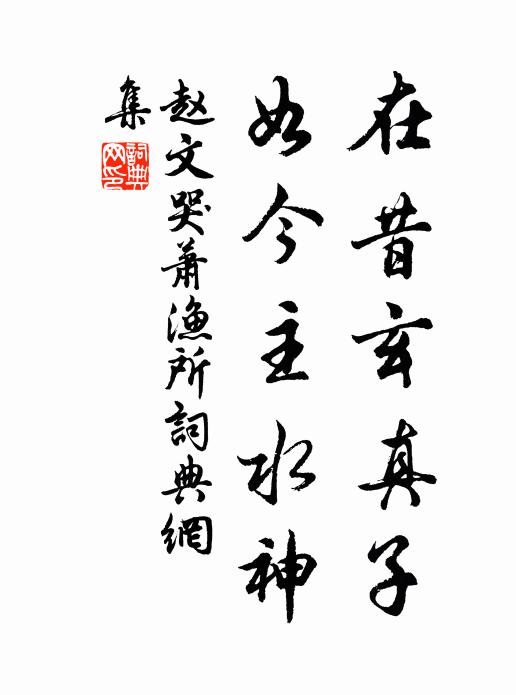 在昔玄真子
如今主水神
赵文哭萧漁所詞典網
集
詞典网印